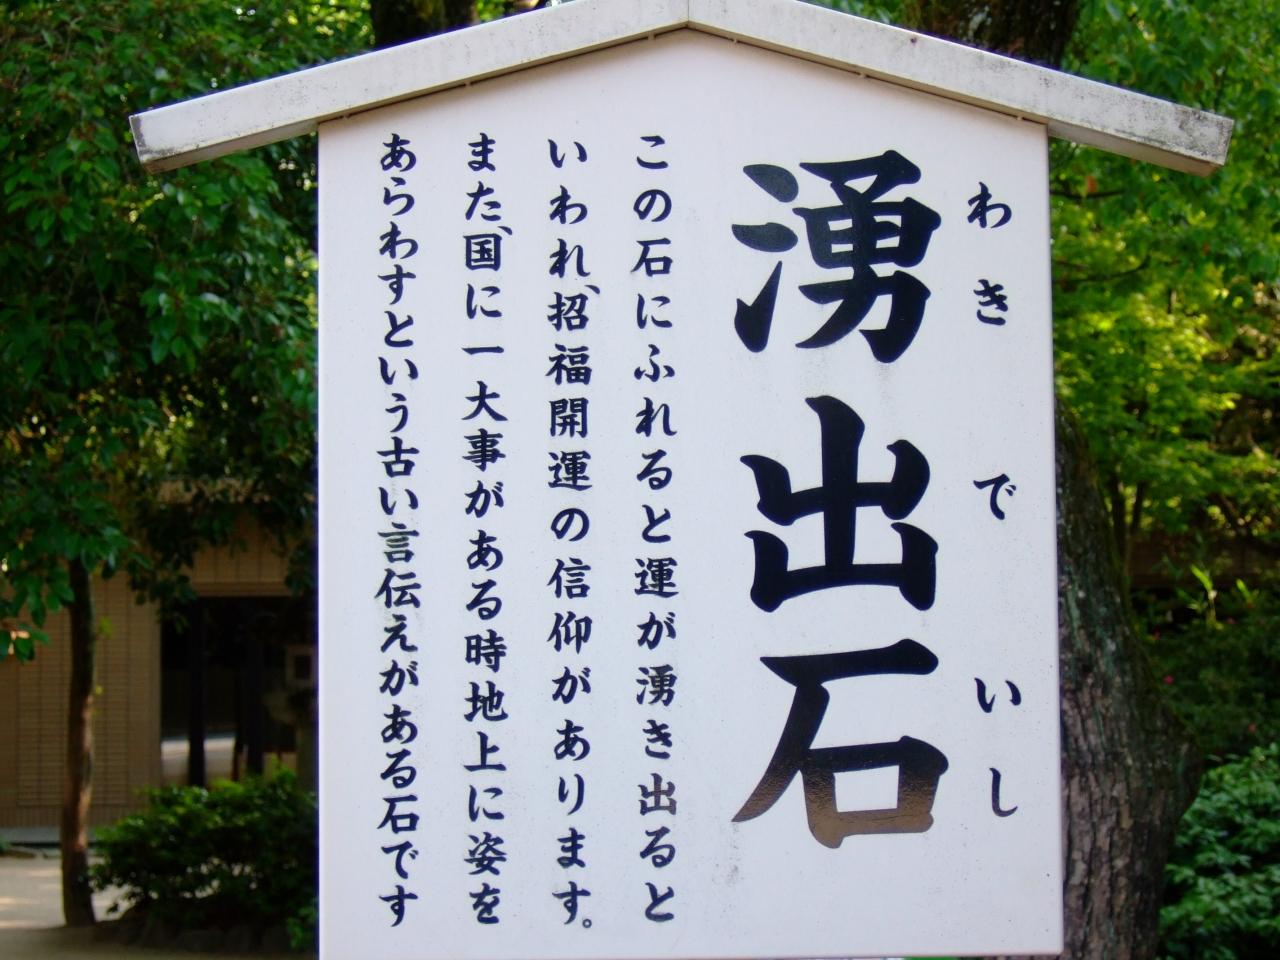 わきでいし
湧出石
この石にふれると運が湧き出ると
いわれ、招福開運の信仰があります。
また、国に一大事がある時地上に姿を
あらわすという古い言伝えがある石です